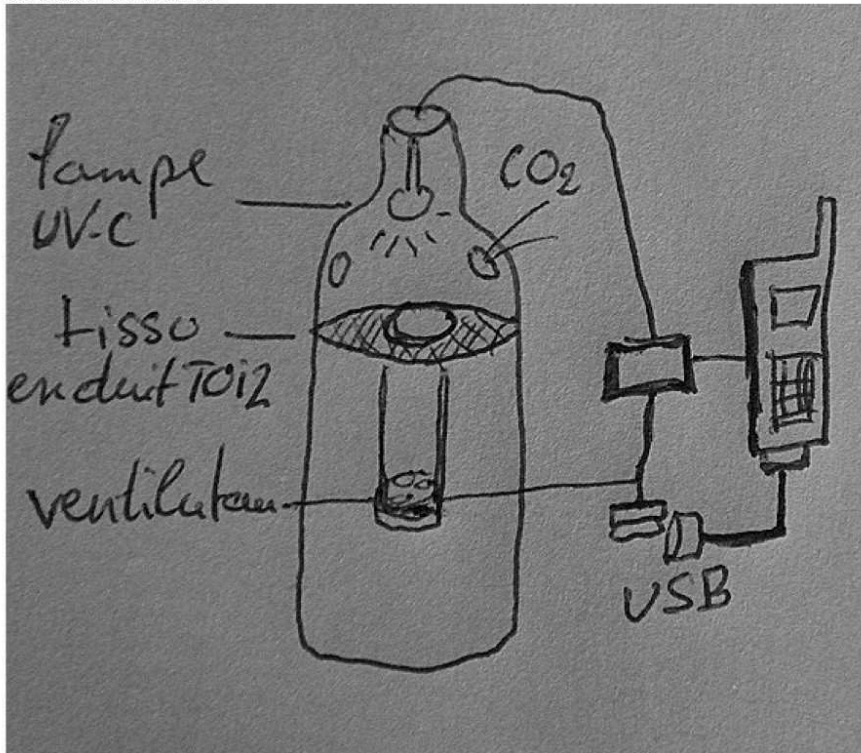 lampe
UV-C
CO2
tisso
enduit TOi2
ventilateur
USB